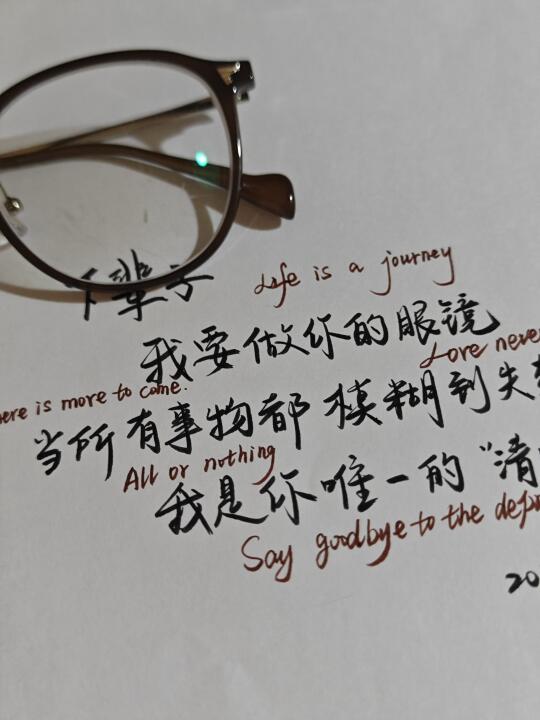 下辈子
Life is a journey
我要做你的眼镜
Love never
here is more to come.
当所有事物都模糊到失
All or nothing
我是你唯一的“清
Say goodbye to the
20